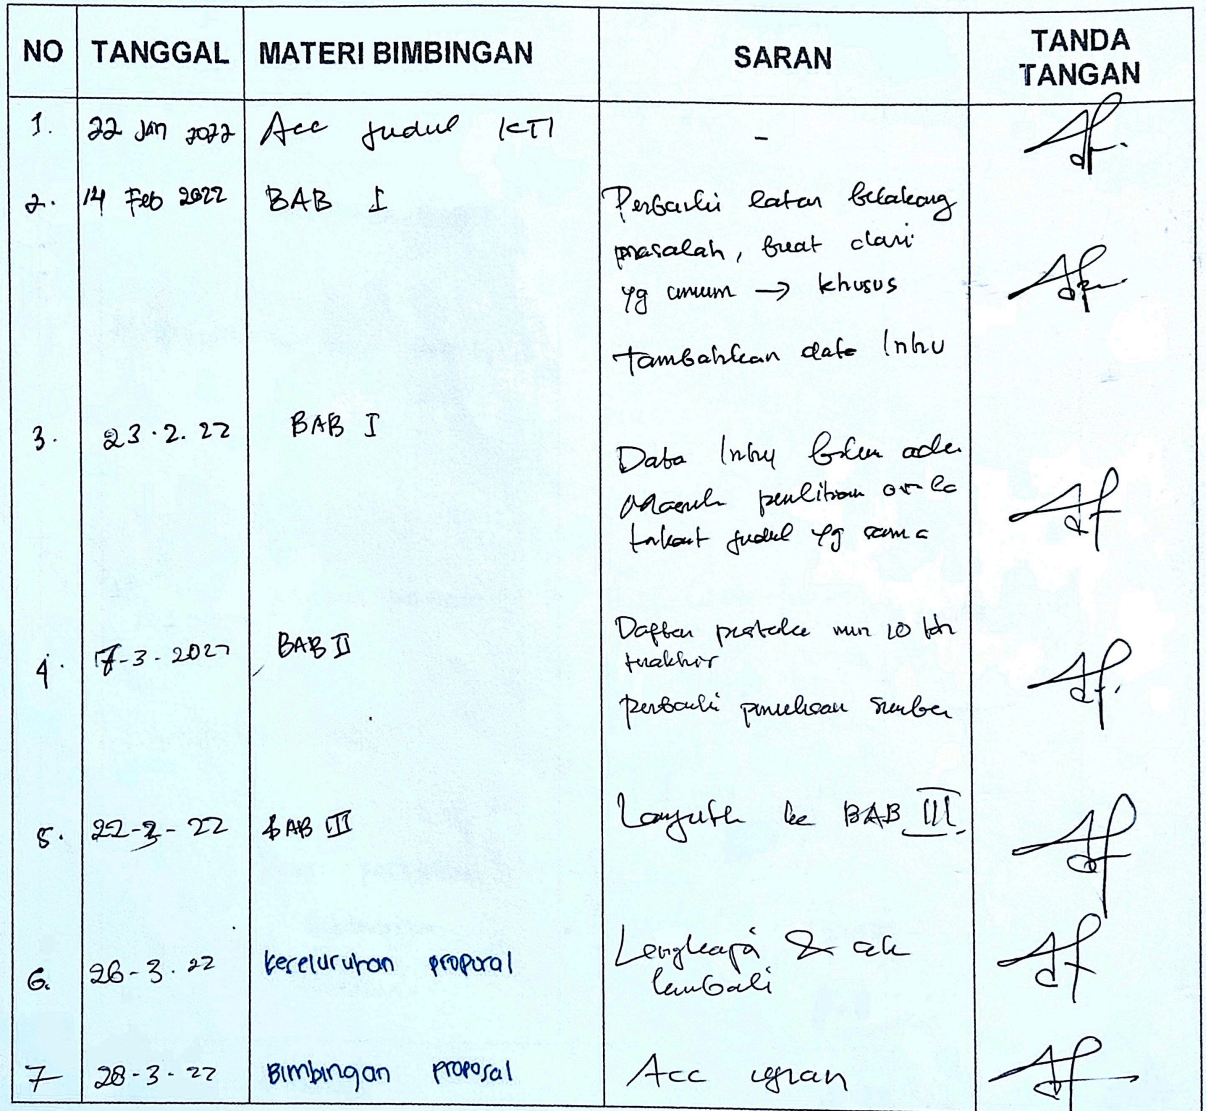 NO TANGGAL MATERI BIMBINGAN SARAN TANDA TANGAN
1. 22 Jan 2022 Acc Judul KTI -
2. 14 Feb 2022 BAB I Perbaiki latar belakang
masalah, buat dari
yg umum → khusus
tambahkan data Inhu
3. 23.2.22 BAB I
Data Inhu belum ada
judul yg sama
4. 7-3-2022 BAB II Daftar pustaka min 10 th
terakhir
perbaiki penulisan sumber
5. 22-3-22 BAB III Lanjutk ke BAB III
6. 26-3.22 keseluruhan proposal Lengkapi & cek
kembali
7 28-3-22 Bimbingan proposal Acc ujian